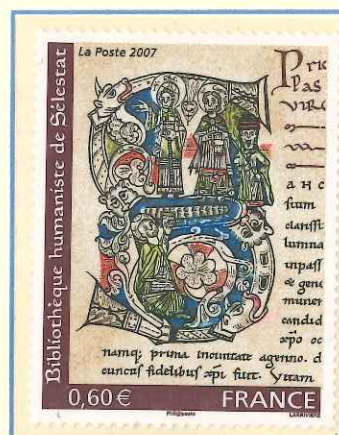 La Poste 2007
Bibliothèque humaniste de Sélestat
Pric
Pas
VIRG
A H C
fium
clariffi
lumna
unpaff
& gene
muner
candid
xpo oc
namq; prima inouitate agenno. d
cunctis fidelibus xpi fuit. Vitam
0,60€
FRANCE
Phil@poste
LARRIVIÈRE